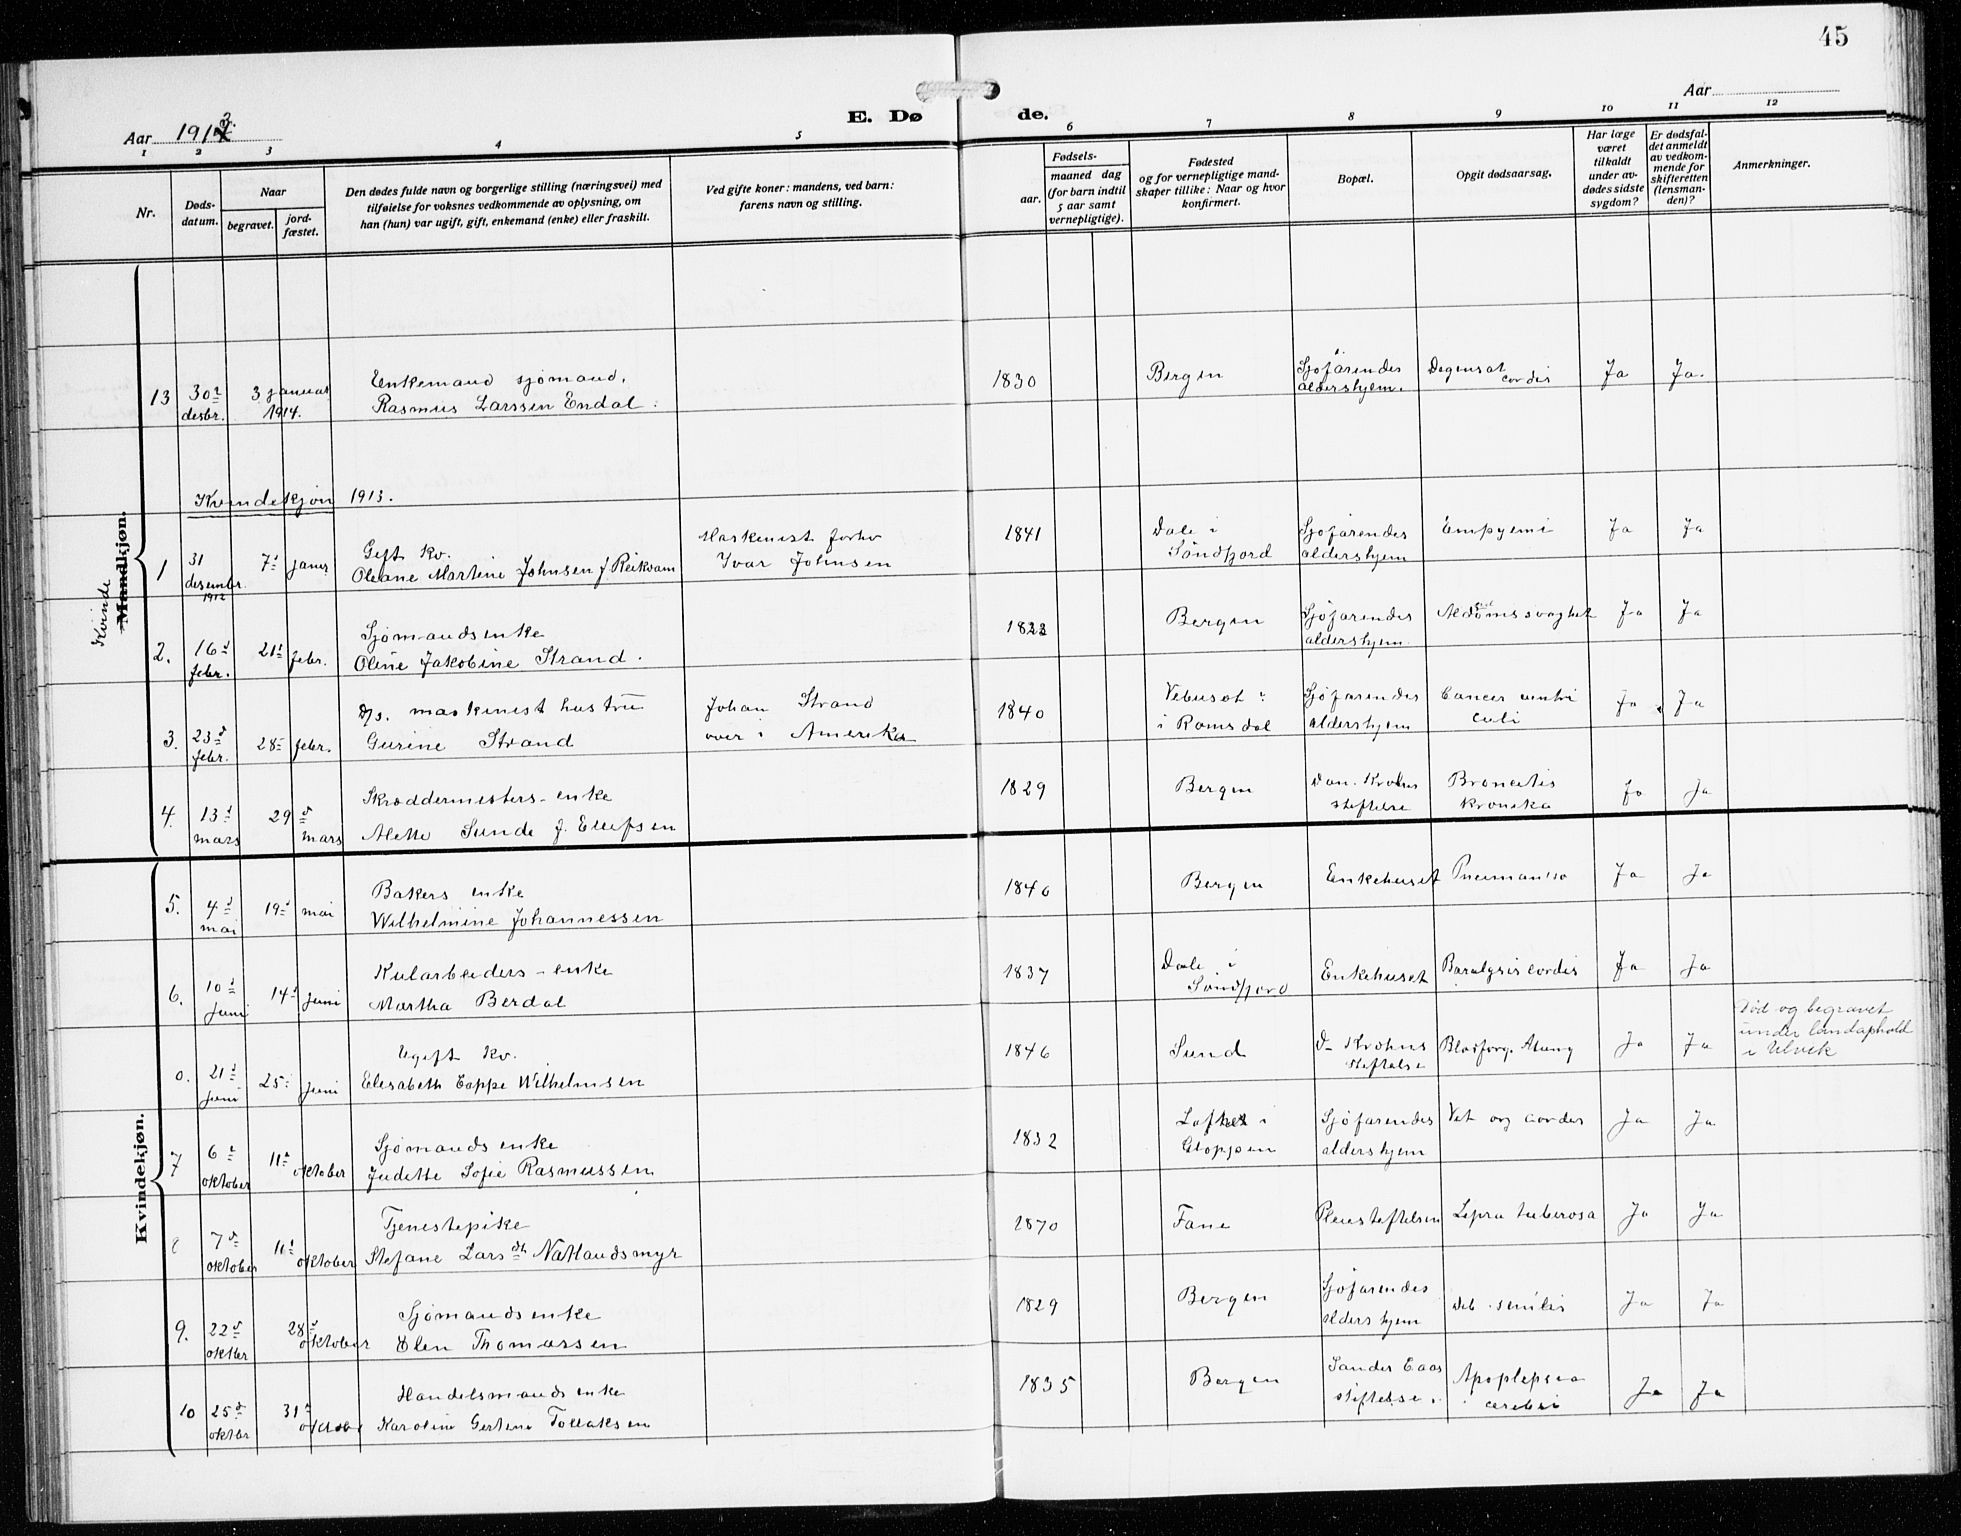 45
Aar 1913
E. Døde.
Aar
1 2 3 4 5 6 7 8 9 10 11 12
Nr.
Dødsdatum.
Naar
begravet.
jordfæstet.
Den dødes fulde navn og borgerlige stilling (næringsvei) med
tilføielse for voksnes vedkommende av oplysning, om
han (hun) var ugift, gift, enkemand (enke) eller fraskilt.
Ved gifte koner: mandens, ved barn:
farens navn og stilling.
Fødsels-
aar.
maaned dag
(for barn indtil
5 aar samt
vernepligtige).
Fødested
og for vernepligtige mand-
skaper tillike: Naar og hvor
konfirmert.
Bopæl.
Opgit dødsaarsag.
Har læge
været
tilkaldt
under av-
dødes sidste
sygdom?
Er dødsfal-
det anmeldt
av vedkom-
mende for
skifteretten
(lensman-
den)?
Anmerkninger.
Mandkjøn.
Kvinde
Kvindekjøn.
13 30 desbr. 3 januar 1914. Enkemand sjømand.
Rasmus Larssen Endal. 1830 Bergen Sjøfarendes
aldershjem. Degenerat
cordis Ja Ja.
Kvindekjøn 1913.
1 31 desembr. 1912 7 januar Gift kv.
Oleane Martine Johnsen f. Reikvam Maskenist forhv
Ivar Johnsen 1841 Dale i
Søndfjord Sjøfarendes
aldershjem Empyemi Ja Ja
2. 16 febr. 21 febr. Sjømands enke
Oline Jakobine Strand. 1833 Bergen Sjøfarendes
aldershjem. Alderdomssvaghet Ja Ja
3. 23 febr. 28 febr. D/s. maskenist hustru
Gurine Strand Johan Strand
over i Amerika 1840 Vebuset
i Romsdal Sjøfarendes
aldershjem Cancer ventri
culi Ja Ja
4. 13 mars 29 mars Skræddermesters-enke
Alette Sunde f. Ellefsen 1829 Bergen Dan. Krohns
stiftelse Broncitis
kronika ja Ja
5. 4 mai 19 mai Bakers enke
Wilhelmine Johannessen 1846 Bergen Enkehuset Pneumonia Ja Ja
6. 10 Juni 14 juni Kularbeiders-enke
Martha Berdal 1837 Dale i
Søndfjord Enkehuset Paralysis cordis Ja Ja
0. 21 juni 25 juni Ugift kv.
Elisabeth Cappe Wilhelmsen 1846 Sund D- Krohns
stiftelse Blodforg. Ja Ja Død og begravet
under landophold
i Ulvik
7 6 oktober 11 oktober Sjømands enke
Judette Sofie Rasmussen 1832 i
Gloppen Sjøfarendes
aldershjem Vet org cordis Ja Ja
8 7 oktober 11 oktober Tjenestepike
Stefane Larsdt Natlandsmyr 1870 Fane Pleiestiftelsen Lepra tuberosa Ja Ja
9. 22 oktber 28 oktober Sjømands enke
Elen Thomassen 1829 Bergen Sjøfarendes
aldershjem Deb. senilis Ja Ja
10 25 oktbr 31 oktober Handelsmands enke
Karoline Gertine Tollaksen 1835 Bergen Sander Caas
stiftelse. Apoplepsia
cerebri Ja Ja